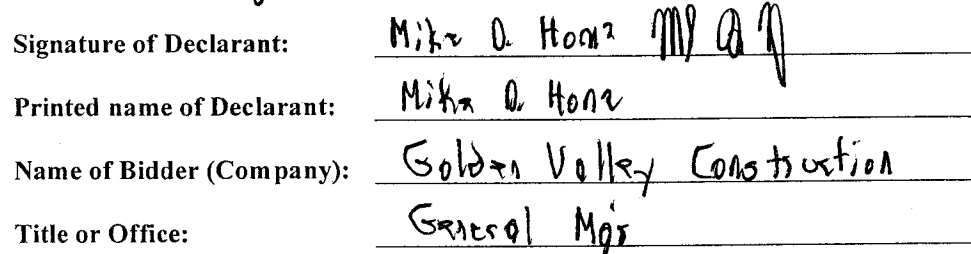 Signature of Declarant: Mike D. Hone
Printed name of Declarant: Mike D. Hone
Name of Bidder (Company): Golden Valley Construction
Title or Office: General Mgr